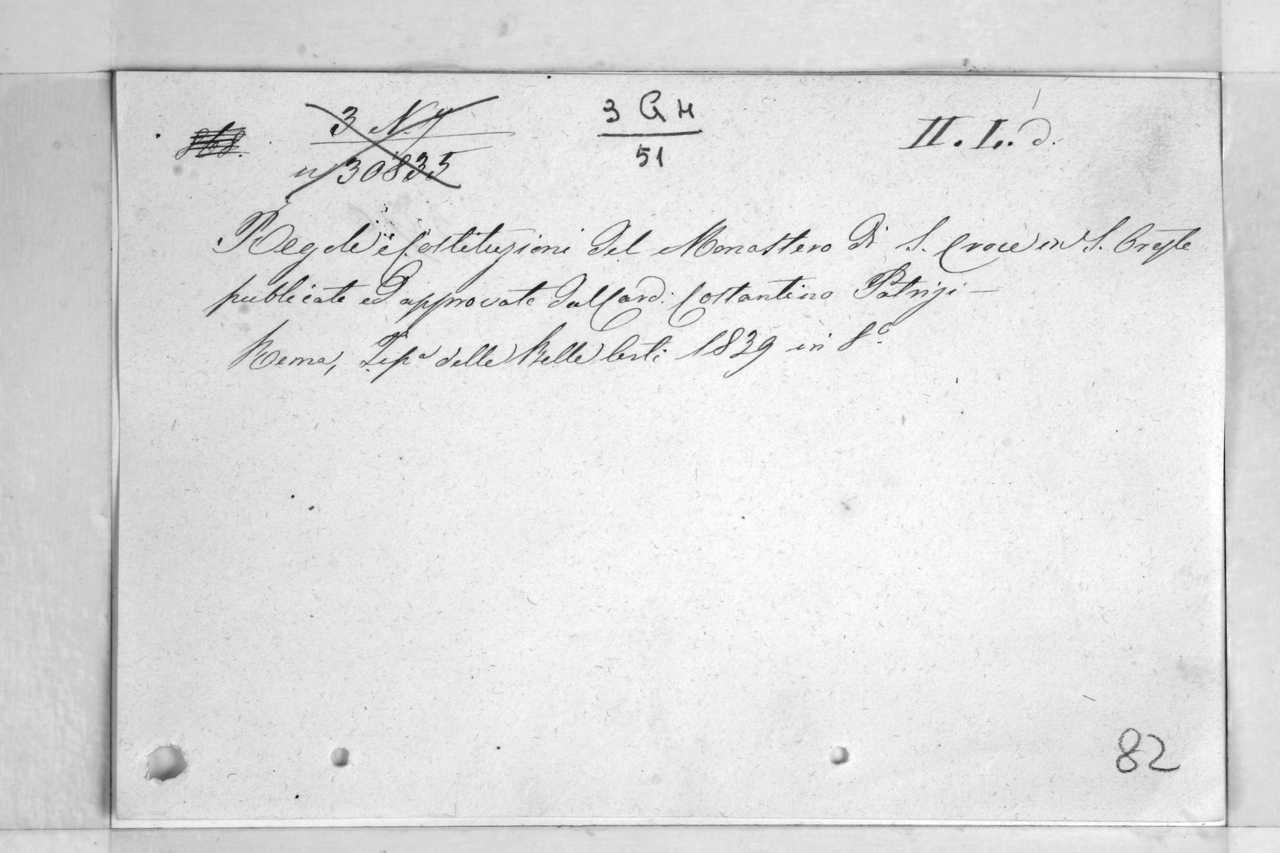 3 N. 4
n 30835
3 G H
51
II. I. d.
Regole e Costituzioni del Monastero di S. Croce in S. Oreste
publicate ed approvate dal Card: Costantino Patrizi —
Roma, Tip.ª delle Belle Arti 1839 in 8.º
82